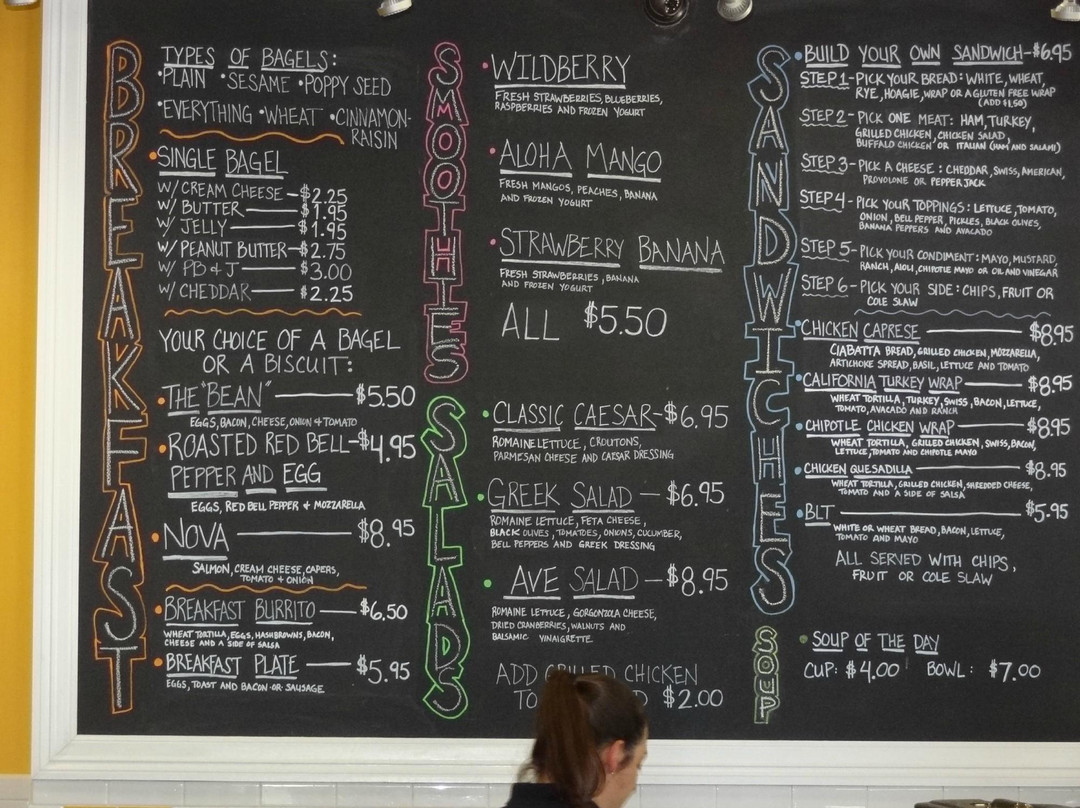 BREAKFAST
TYPES OF BAGELS:
•PLAIN •SESAME •POPPY SEED
•EVERYTHING •WHEAT •CINNAMON-
RAISIN
•SINGLE BAGEL
W/ CREAM CHEESE – $2.25
W/ BUTTER — $1.95
W/ JELLY — $1.95
W/ PEANUT BUTTER – $2.75
W/ PB & J — $3.00
W/ CHEDDAR — $2.25
YOUR CHOICE OF A BAGEL
OR A BISCUIT:
•THE "BEAN" — $5.50
EGGS, BACON, CHEESE, ONION & TOMATO
•ROASTED RED BELL – $4.95
PEPPER AND EGG
EGGS, RED BELL PEPPER & MOZZARELLA
•NOVA — $8.95
SALMON, CREAM CHEESE, CAPERS,
TOMATO & ONION
•BREAKFAST BURRITO — $6.50
WHEAT TORTILLA, EGGS, HASHBROWNS, BACON,
CHEESE AND A SIDE OF SALSA
•BREAKFAST PLATE — $5.95
EGGS, TOAST AND BACON OR SAUSAGE
SMOOTHIES
•WILDBERRY
FRESH STRAWBERRIES, BLUEBERRIES,
RASPBERRIES AND FROZEN YOGURT
•ALOHA MANGO
FRESH MANGOS, PEACHES, BANANA
AND FROZEN YOGURT
•STRAWBERRY BANANA
FRESH STRAWBERRIES, BANANA
AND FROZEN YOGURT
ALL $5.50
SALADS
•CLASSIC CAESAR – $6.95
ROMAINE LETTUCE, CROUTONS,
PARMESAN CHEESE AND CAESAR DRESSING
•GREEK SALAD — $6.95
ROMAINE LETTUCE, FETA CHEESE,
BLACK OLIVES, TOMATOES, ONIONS, CUCUMBER,
BELL PEPPERS AND GREEK DRESSING
•AVE SALAD — $8.95
ROMAINE LETTUCE, GORGONZOLA CHEESE,
DRIED CRANBERRIES, WALNUTS AND
BALSAMIC VINAIGRETTE
ADD GRILLED CHICKEN
TO $2.00
SANDWICHES
•BUILD YOUR OWN SANDWICH – $6.95
STEP 1 – PICK YOUR BREAD: WHITE, WHEAT,
RYE, HOAGIE, WRAP OR A GLUTEN FREE WRAP
(ADD $1.50)
STEP 2 – PICK ONE MEAT: HAM, TURKEY,
GRILLED CHICKEN, CHICKEN SALAD,
BUFFALO CHICKEN OR ITALIAN (HAM AND SALAMI)
STEP 3 – PICK A CHEESE: CHEDDAR, SWISS, AMERICAN,
PROVOLONE OR PEPPER JACK
STEP 4 – PICK YOUR TOPPINGS: LETTUCE, TOMATO,
ONION, BELL PEPPER, PICKLES, BLACK OLIVES,
BANANA PEPPERS AND AVACADO
STEP 5 – PICK YOUR CONDIMENT: MAYO, MUSTARD,
RANCH, AIOLI, CHIPOTLE MAYO OR OIL AND VINEGAR
STEP 6 – PICK YOUR SIDE: CHIPS, FRUIT OR
COLE SLAW
•CHICKEN CAPRESE — $8.95
CIABATTA BREAD, GRILLED CHICKEN, MOZZARELLA,
ARTICHOKE SPREAD, BASIL, LETTUCE AND TOMATO
•CALIFORNIA TURKEY WRAP — $8.95
WHEAT TORTILLA, TURKEY, SWISS, BACON, LETTUCE,
TOMATO, AVACADO AND RANCH
•CHIPOTLE CHICKEN WRAP — $8.95
WHEAT TORTILLA, GRILLED CHICKEN, SWISS, BACON,
LETTUCE, TOMATO AND CHIPOTLE MAYO
•CHICKEN QUESADILLA — $8.95
WHEAT TORTILLA, GRILLED CHICKEN, SHREDDED CHEESE,
TOMATO AND A SIDE OF SALSA
•BLT — $5.95
WHITE OR WHEAT BREAD, BACON, LETTUCE,
TOMATO AND MAYO
ALL SERVED WITH CHIPS,
FRUIT OR COLE SLAW
SOUP
•SOUP OF THE DAY
CUP: $4.00 BOWL: $7.00